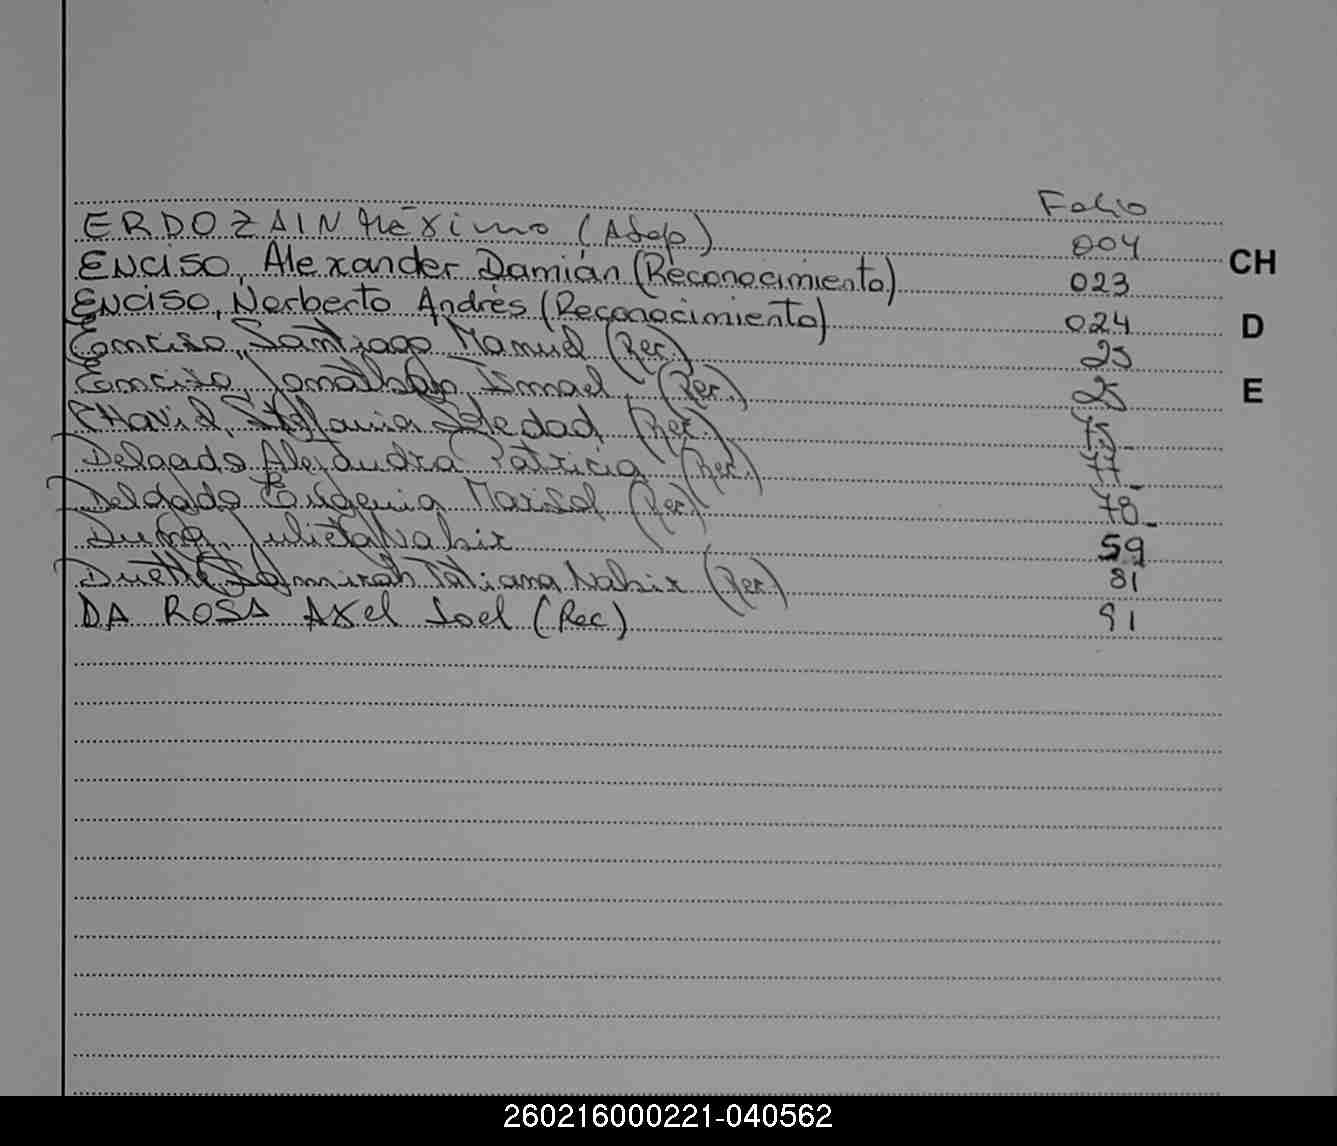 Folio
ERDOZAIN Máximo (Adop) 004
CH
ENCISO, Alexander Damián (Reconocimiento) 023
ENCISO, Norberto Andrés (Reconocimiento) 024
D
Enciso, Santiago Manuel (Rec.) 25
Enciso, Jonathan Ismael (Rec.) 25
E
CHavid, Steffania Soledad (Rec.) 75
Delgado Alejandra Patricia (Rec.) 77
Delgado Eugenia Marisol (Rec) 78
Julieta Nahir 59
Tatiana Nahir (Rec.) 81
DA ROSA Axel Joel (Rec) 91
260216000221-040562